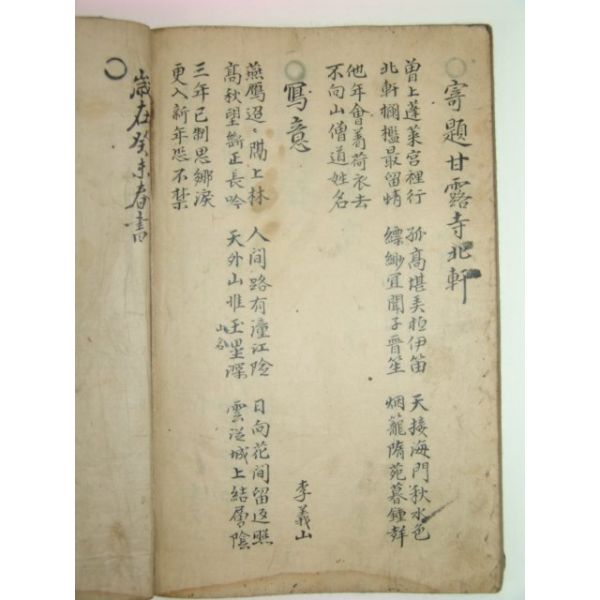 寄題甘露寺北軒
曽上蓬萊宮裡行 孤高堪美桓伊笛 天接海門秋水色
北軒欄檻最留情 縹緲宜聞子晋笙 烟籠隋苑暮鍾聲
他年會着荷衣去
不向山僧道姓名
寫意 李義山
燕鴈迢〻隔上林 人間路有潼江險 日向花間留返照
高秋望斷正長吟 天外山惟玉壘深 雲従城上結層陰
山名
三年已制思鄉淚
更入新年恐不禁
歲在癸未春書